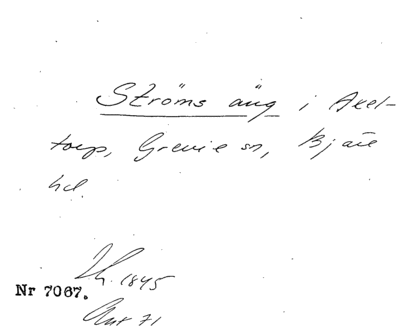 Ströms äng i Axel-
torp, Grevie sn, Bjäre
hd.
1845
Nr 7067.
71